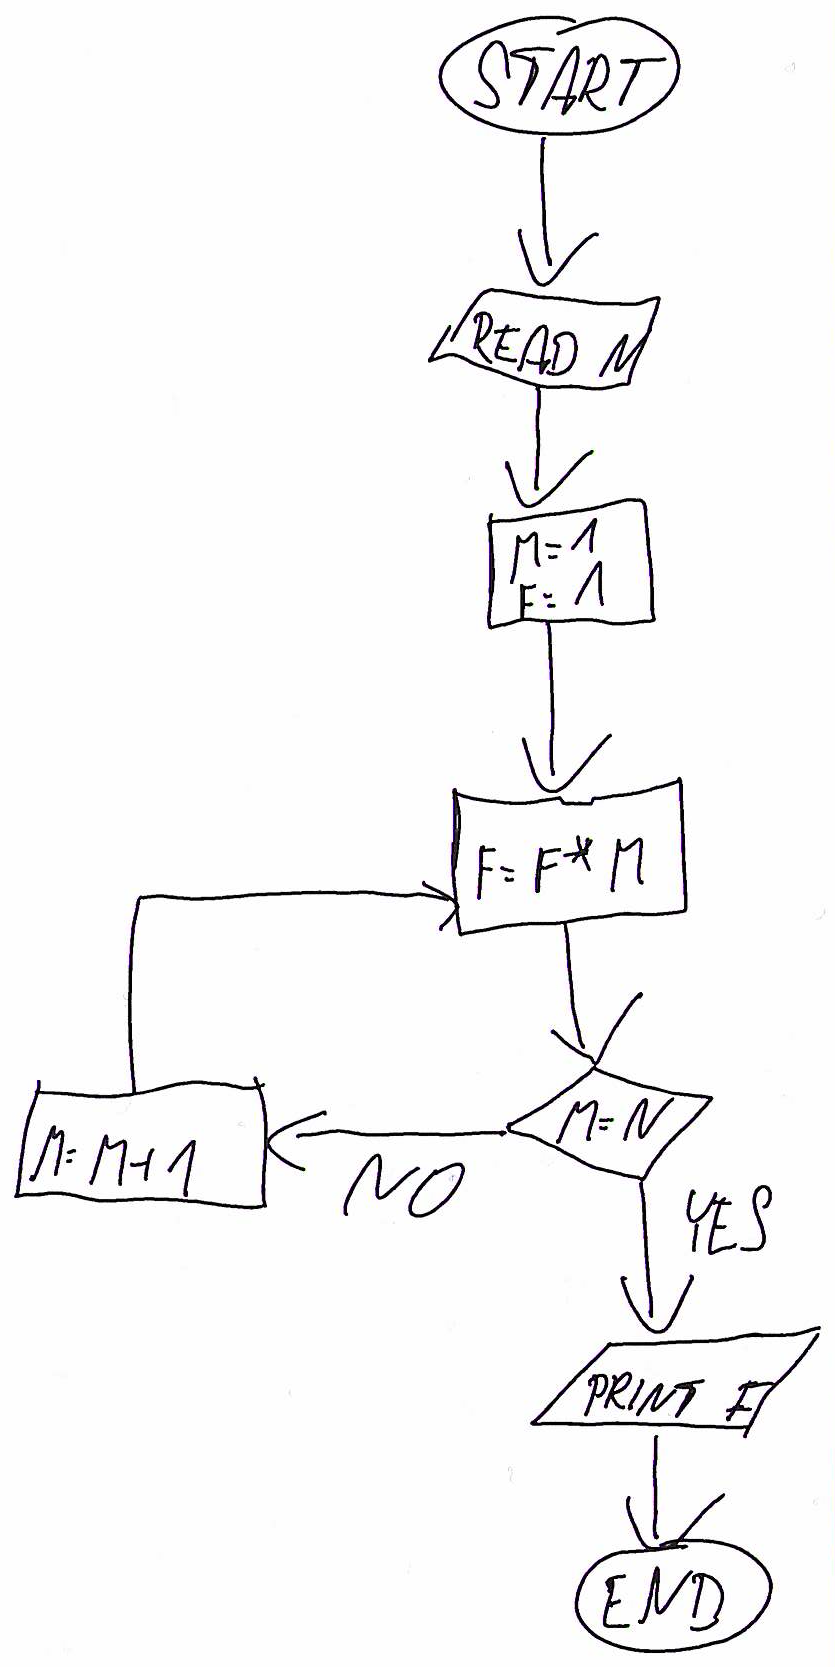 START
READ N
M=1
F=1
F=F*M
M=N
NO
M=M+1
YES
PRINT F
END